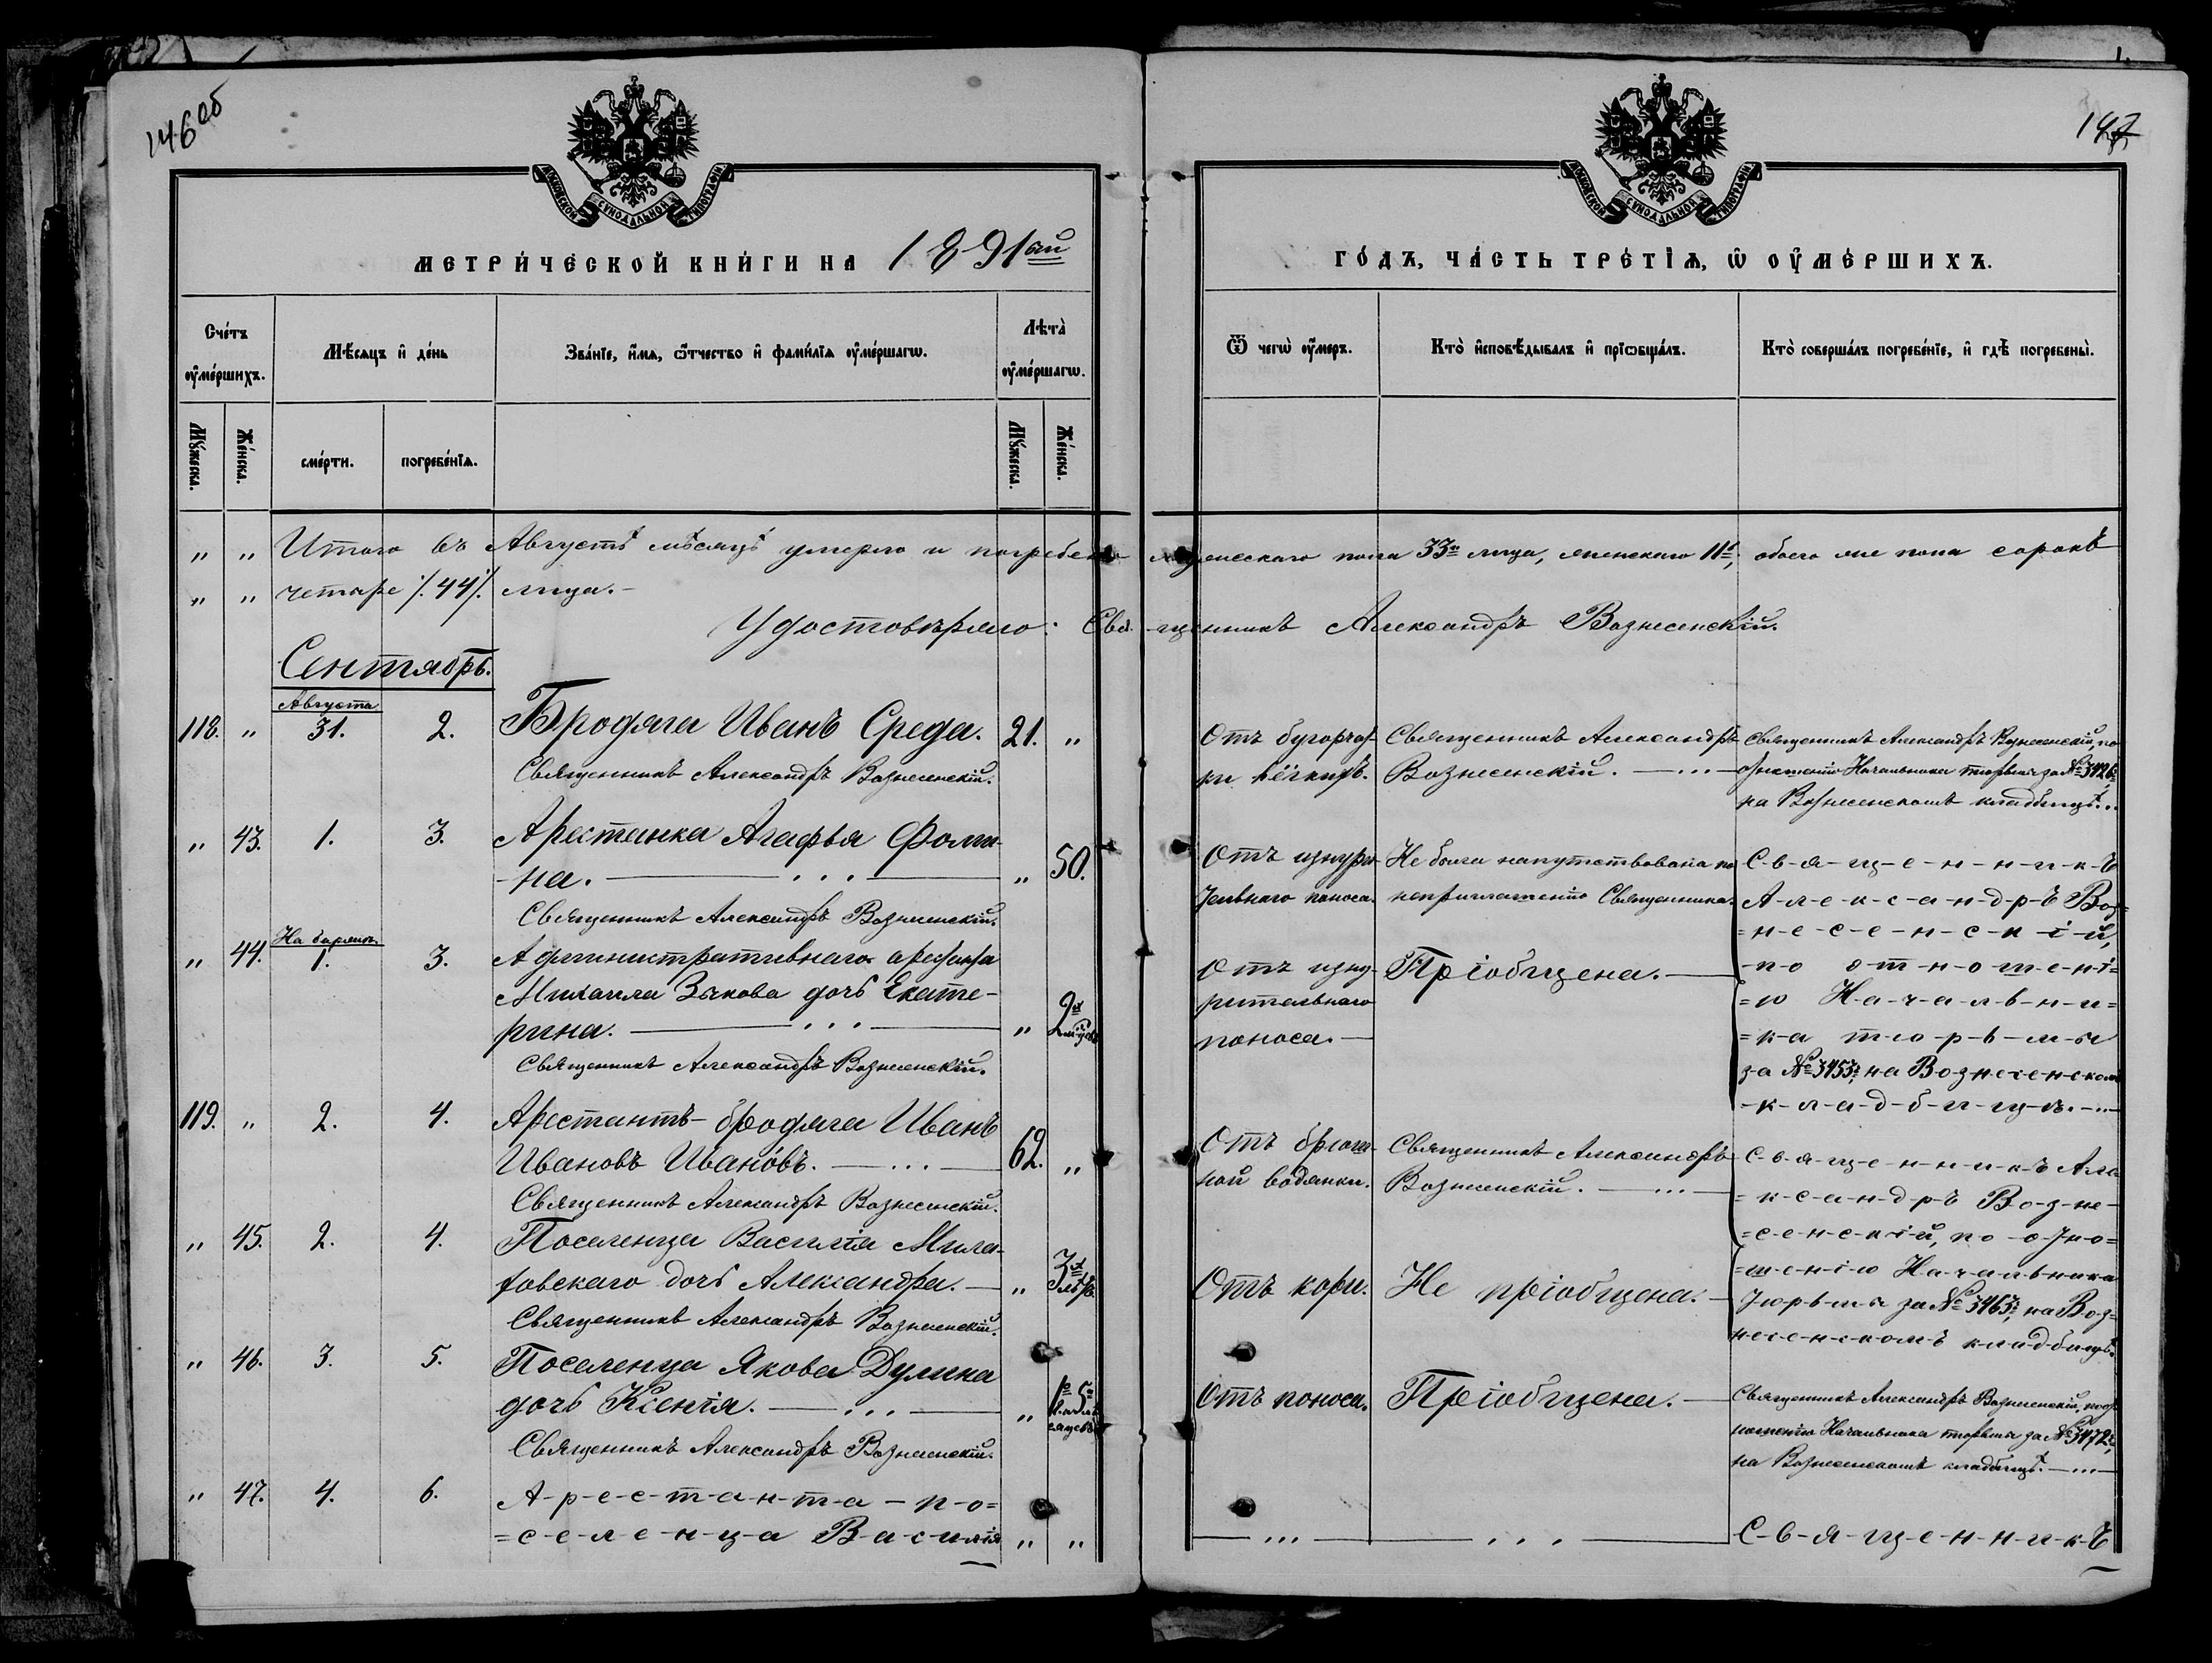 146 об
147
МОСКОВСКОЙ СѴНОДАЛЬНОЙ ТИПОГРАФІИ
МОСКОВСКОЙ СѴНОДАЛЬНОЙ ТИПОГРАФІИ
МЕТРИ́ЧЕСКОЙ КНИ́ГИ НА 1891ый
ГО́ДЪ, ЧА́СТЬ ТРЕ́ТІѦ, Ѡ ОУ҆МЕ́РШИХЪ.
Сче́тъ оу҆ме́ршихъ.
Мѣ́сѧцъ и҆ де́нь
Зва́нїе, и҆́мѧ, ѻ҆́тчество и҆ фами́лїѧ оу҆ме́ршагѡ.
Лѣта̀ оу҆ме́ршагѡ.
Ѿ чегѡ̀ оу҆́меръ.
Кто̀ и҆сповѣ́дывалъ и҆ прїѡбща́лъ.
Кто̀ соверша́лъ погребе́нїе, и҆ гдѣ̀ погребены̀.
Му́жеска.
Же́нска.
сме́рти.
погребе́нїѧ.
Му́жеска.
Же́нска.
„ „ Итого въ Августѣ мѣсяцѣ умерло и погребено мужескаго пола 33и лица, женскаго 11ь, обоего же пола сорокъ
„ „ четыре /.44/. лица.-
Удостовѣряю: Священникъ Александръ Вознесенскій.
Сентябрь.
Августа
118. „ 31. 2. Бродяга Иванъ Среда. 21. „
Священникъ Александръ Вознесенскій.
Отъ бугорчат-
ки лёгкихъ.
Священникъ Александръ
Вознесенскій. — ... —
Священникъ Александръ Вознесенскій, по
отношенію Начальника тюрьмы за № 3426,
на Вознесенскомъ кладбищѣ...
„ 43. 1. 3. Арестанка Агафья Фоми-
-на. — ... — „ 50.
Священникъ Александръ Вознесенскій.
Отъ изнури-
тельнаго поноса.
Не была напутствована по
неприглашенію Священника.
С-в-я-щ-е-н-н-и-к-ъ
А-л-е-к-с-а-н-д-р-ъ Воз-
=н-е-с-е-н-с-к-і-й,
-п-о о-т-н-о-ш-е-н-і-
=ю Н-а-ч-а-л-ь-н-и-
=к-а т-ю-р-ь-м-ы
за № 3453, на Вознесенскомъ
-к-л-а-д-б-и-щ-ѣ.-..-
На баржѣ.
„ 44. 1. 3. Административнаго арестанта
Михаила Зыкова дочь Екате-
рина. — ... — „ 2хъ
Священникъ Александръ Вознесенскій.
Отъ изну-
рительнаго
поноса. —
Пріобщена. —
119. „ 2. 4. Арестантъ-бродяга Иванъ
Ивановъ Ивановъ. — ... — 62. „
Священникъ Александръ Вознесенскій.
Отъ брюш-
ной водянки.
Священникъ Александръ
Вознесенскій. — ... —
С-в-я-щ-е-н-н-и-к-ъ Але-
=к-с-а-н-д-р-ъ В-о-з-не-
=с-е-н-с-к-і-й, п-о о-т-н-о=
=ш-е-н-і-ю Н-а-ч-а-л-ь-н-и-к-а
тюрьмы за № 3463, на Воз=
несенскомъ кладбищѣ.
„ 45. 2. 4. Поселенца Василія Мила-
товскаго дочь Александра. — „ 3хъ лѣтъ.
Священникъ Александръ Вознесенскій.
Отъ кори.
Не пріобщена. —
„ 46. 3. 5. Поселенца Якова Дулина
дочь Ксенія. — ... — „
Священникъ Александръ Вознесенскій.
Отъ поноса.
Пріобщена. —
Священникъ Александръ Вознесенскій, по от-
ношенію Начальника тюрьмы за № 3472,
на Вознесенскомъ кладбищѣ. — ... —
„ 47. 4. 6. А-р-е-с-т-а-н-т-а - п-о=
=с-е-л-е-н-ц-а В-а-с-и-лія „ „
— ... — — ... —
С-в-я-щ-е-н-н-и-к-ъ